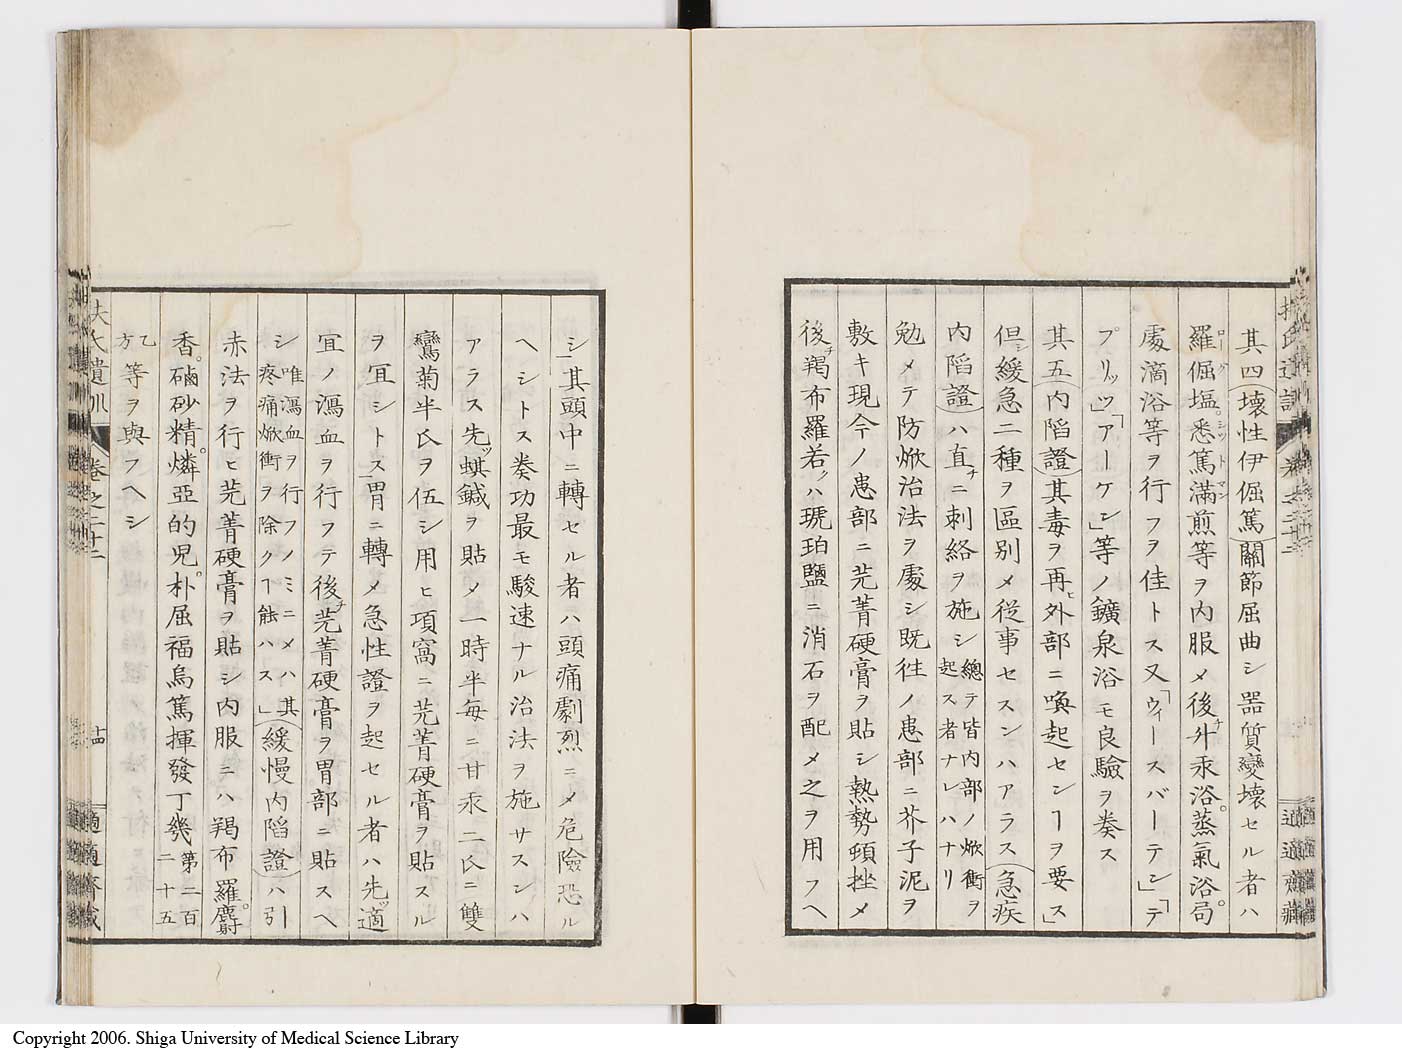 其四(壊性伊倔篤)關節屈曲シ器質變壊セル者ハ
羅倔塩。悉篤満煎等ヲ内服メ後チ外汞浴。蒸氣浴。局
處滴浴等ヲ行フヲ佳トス又「ウィースバーテン」「テ
プリッツ」「アーケン」等ノ鑛泉浴モ良驗ヲ奏ス
其五(内陷證)其毒ヲ再ヒ外部ニ喚起センヿヲ要ス」
但シ緩急二種ヲ區別メ従事セスンハアラス(急疾
内陷證)ハ直チニ刺絡ヲ施シ總テ皆内部ノ焮衝ヲ起ス者ナレハナリ
勉メテ防焮治法ヲ處シ既徃ノ患部ニ芥子泥ヲ
敷キ現今ノ患部ニ芫菁硬膏ヲ貼シ熱勢頓挫メ
後チ羯布羅若クハ琥珀鹽ニ消石ヲ配メ之ヲ用フヘ
シ」其頭中ニ轉セル者ハ頭痛劇烈ニメ危險恐ル
ヘシトス奏功最モ駿速ナル治法ヲ施サスンハ
アラス先ツ蜞鍼ヲ貼メ一時半毎ニ甘汞二氏ニ雙
鸞菊半氏ヲ伍シ用ヒ項窩ニ芫菁硬膏ヲ貼スル
ヲ冝シトス胃ニ轉メ急性證ヲ起セル者ハ先ツ適
冝ノ瀉血ヲ行フテ後チ芫菁硬膏ヲ胃部ニ貼スヘ
シ唯瀉血ヲ行フノミニメハ其疼痛焮衝ヲ除クヿ能ハス」(緩慢内陷證)ハ引
赤法ヲ行ヒ芫菁硬膏ヲ貼シ内服ニハ羯布羅。麝
香。磠砂精。燐亞的児。朴屈福烏篤揮發丁幾第二百二十五
乙方等ヲ與フヘシ
扶氏遺訓
卷之二十二
十四
適適齋藏